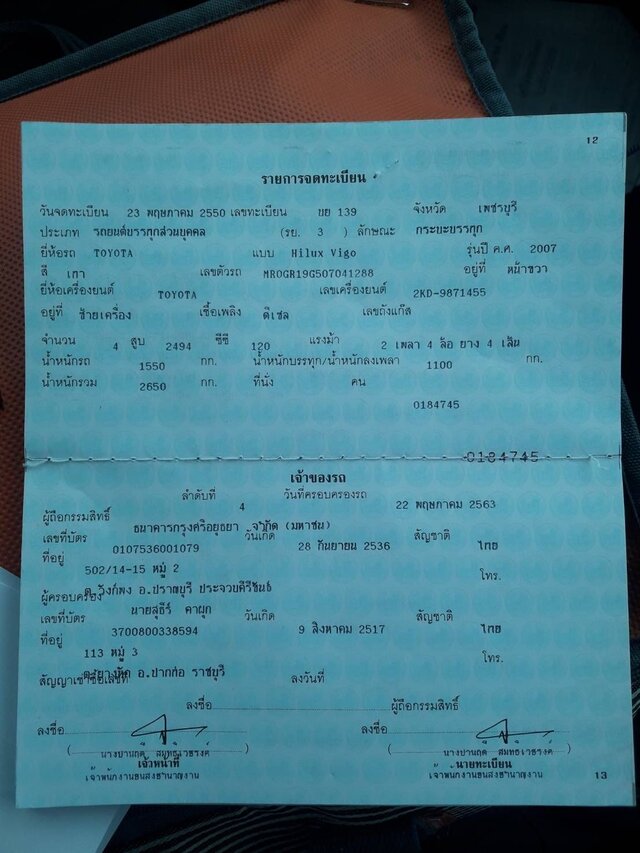 12
รายการจดทะเบียน
วันจดทะเบียน 23 พฤษภาคม 2550 เลขทะเบียน บย 139 จังหวัด เพชรบุรี
ประเภท รถยนต์บรรทุกส่วนบุคคล (รย. 3 ) ลักษณะ กระบะบรรทุก
ยี่ห้อรถ TOYOTA แบบ Hilux Vigo รุ่นปี ค.ศ. 2007
สี เทา เลขตัวรถ MR0GR19G507041288 อยู่ที่ หน้าขวา
ยี่ห้อเครื่องยนต์ TOYOTA เลขเครื่องยนต์ 2KD-9871455
อยู่ที่ ซ้ายเครื่อง เชื้อเพลิง ดีเซล เลขถังแก๊ส
จำนวน 4 สูบ 2494 ซีซี 120 แรงม้า 2 เพลา 4 ล้อ ยาง 4 เส้น
น้ำหนักรถ 1550 กก. น้ำหนักบรรทุก/น้ำหนักลงเพลา 1100 กก.
น้ำหนักรวม 2650 กก. ที่นั่ง คน
0184745
0184745
เจ้าของรถ
ลำดับที่ 4 วันที่ครอบครองรถ 22 พฤษภาคม 2563
ผู้ถือกรรมสิทธิ์ ธนาคารกรุงศรีอยุธยา จำกัด (มหาชน)
เลขที่บัตร 0107536001079 วันเกิด 28 กันยายน 2536 สัญชาติ ไทย
ที่อยู่ 502/14-15 หมู่ 2 โทร.
ต.วังก์พง อ.ปราณบุรี ประจวบคีรีขันธ์
ผู้ครอบครอง นายสุธีร์ คาผุก
เลขที่บัตร 3700800338594 วันเกิด 9 สิงหาคม 2517 สัญชาติ ไทย
ที่อยู่ 113 หมู่ 3 โทร.
อ.ปากท่อ ราชบุรี
สัญญาเช่าซื้อเลขที่ ลงวันที่
ลงชื่อ ผู้ถือกรรมสิทธิ์
ลงชื่อ ลงชื่อ
( นางปานฤดี ) ( นางปานฤดี )
เจ้าหน้าที่ นายทะเบียน
เจ้าพนักงานขนส่งชำนาญงาน เจ้าพนักงานขนส่งชำนาญงาน
13